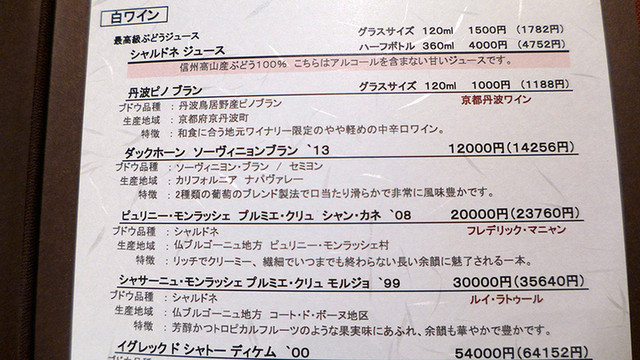 白ワイン
最高級ぶどうジュース グラスサイズ 120ml 1500円 (1782円)
シャルドネ ジュース ハーフボトル 360ml 4000円 (4752円)
信州高山産ぶどう100% こちらはアルコールを含まない甘いジュースです。
丹波ピノ ブラン グラスサイズ 120ml 1000円 (1188円)
ブドウ品種 : 丹波鳥居野産ピノブラン 京都丹波ワイン
生産地域 : 京都府京丹波町
特徴 : 和食に合う地元ワイナリー限定のやや軽めの中辛口ワイン。
ダックホーン ソーヴィニョンブラン `13 12000円(14256円)
ブドウ品種 : ソーヴィニョン・ブラン / セミヨン
生産地域 : カリフォルニア ナパヴァレー
特徴 : 2種類の葡萄のブレンド製法で口当たり滑らかで非常に風味豊かです。
ピュリニー・モンラッシェ プルミエ・クリュ シャン・カネ `08 20000円(23760円)
ブドウ品種 : シャルドネ フレデリック・マニャン
生産地域 : 仏ブルゴーニュ地方 ピュリニー・モンラッシェ村
特徴 : リッチでクリーミー、繊細でいつまでも終わらない長い余韻に魅了される一本。
シャサーニュ・モンラッシェ プルミエ・クリュ モルジョ `99 30000円(35640円)
ブドウ品種 : シャルドネ ルイ・ラトゥール
生産地域 : 仏ブルゴーニュ地方 コート・ド・ボーヌ地区
特徴 : 芳醇かつトロピカルフルーツのような果実味にあふれ、余韻も華やかで豊かです。
イグレック ド シャトー ディケム `00 54000円(64152円)